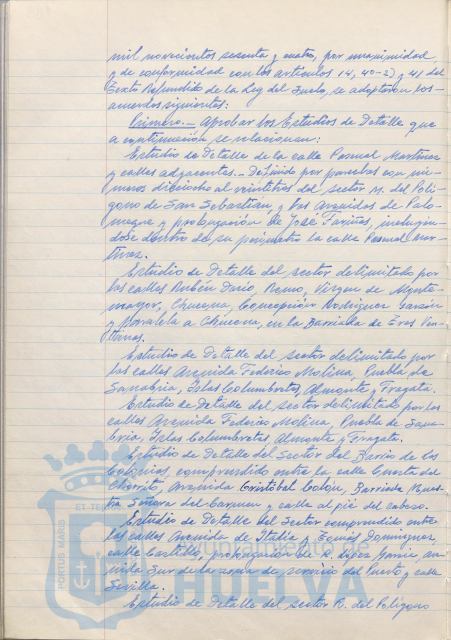 mil novecientos sesenta y cuatro, por unanimidad
y de conformidad con los artículos 14, 40-2) y 41 del
Texto Refundido de la Ley del Suelo, se adoptaron los
acuerdos siguientes:
Primero.- Aprobar los Estudios de Detalle que
a continuación se relacionan:
Estudio de Detalle de la calle Pascual Martínez
y calles adyacentes.- Definido por parcelas con nú-
meros dieciocho al veintitres del sector M. del Polí-
gono de San Sebastian, y las Avenidas de Palo-
meque y prolongación de José Fariñas, incluyén-
dose dentro de su perímetro la calle Pascual Mar-
tínez.
Estudio de Detalle del sector delimitado por
las calles Rubén Darío, Nervo, Virgen de Monte-
mayor, Chucena, Concepción Rodríguez Garzón
y paralela a Chucena, en la Barriada de Tres Ven-
tanas.
Estudio de Detalle del sector delimitado por
las calles Avenida Federico Molina, Puebla de
Sanabria, Islas Columbretes, Almonte y Fragata.
Estudio de Detalle del sector delimitado por las
calles Avenida Federico Molina, Puebla de Sana-
bria, Islas Columbretes, Almonte y Fragata.
Estudio de Detalle del Sector del Barrio de las
Colonias, comprendido entre la calle Cuesta del
Chorrito, Avenida Cristóbal Colón, Barriada Nues-
tra Señora del Carmen y calle al pie del cabezo.
Estudio de Detalle del Sector comprendido entre
las calles Avenida de Italia y Tomás Domínguez,
calle Castilla, prolongación de A. López García, ave-
nida Sur de la zona de servicio del Puerto y calle
Sevilla.
Estudio de Detalle del sector R. del Polígono
PORTUS MARIS
ET TE
HUELVA